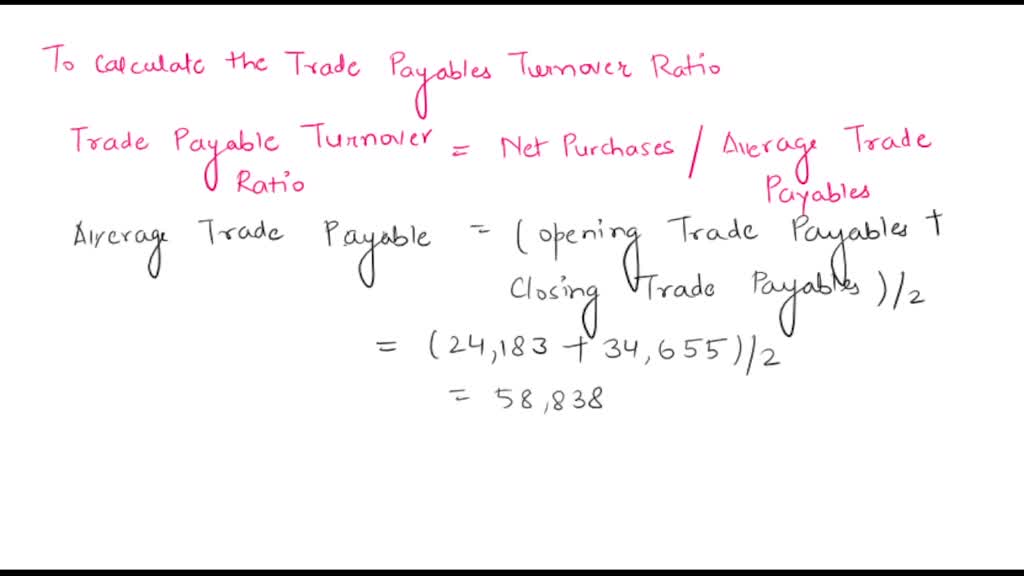 To calculate the Trade Payables Turnover Ratio
Trade Payable Turnover Ratio = Net Purchases / Average Trade Payables
Average Trade Payable = (opening Trade Payables +
Closing Trade Payables)/2
= (24,183 + 34,655)/2
= 58,838